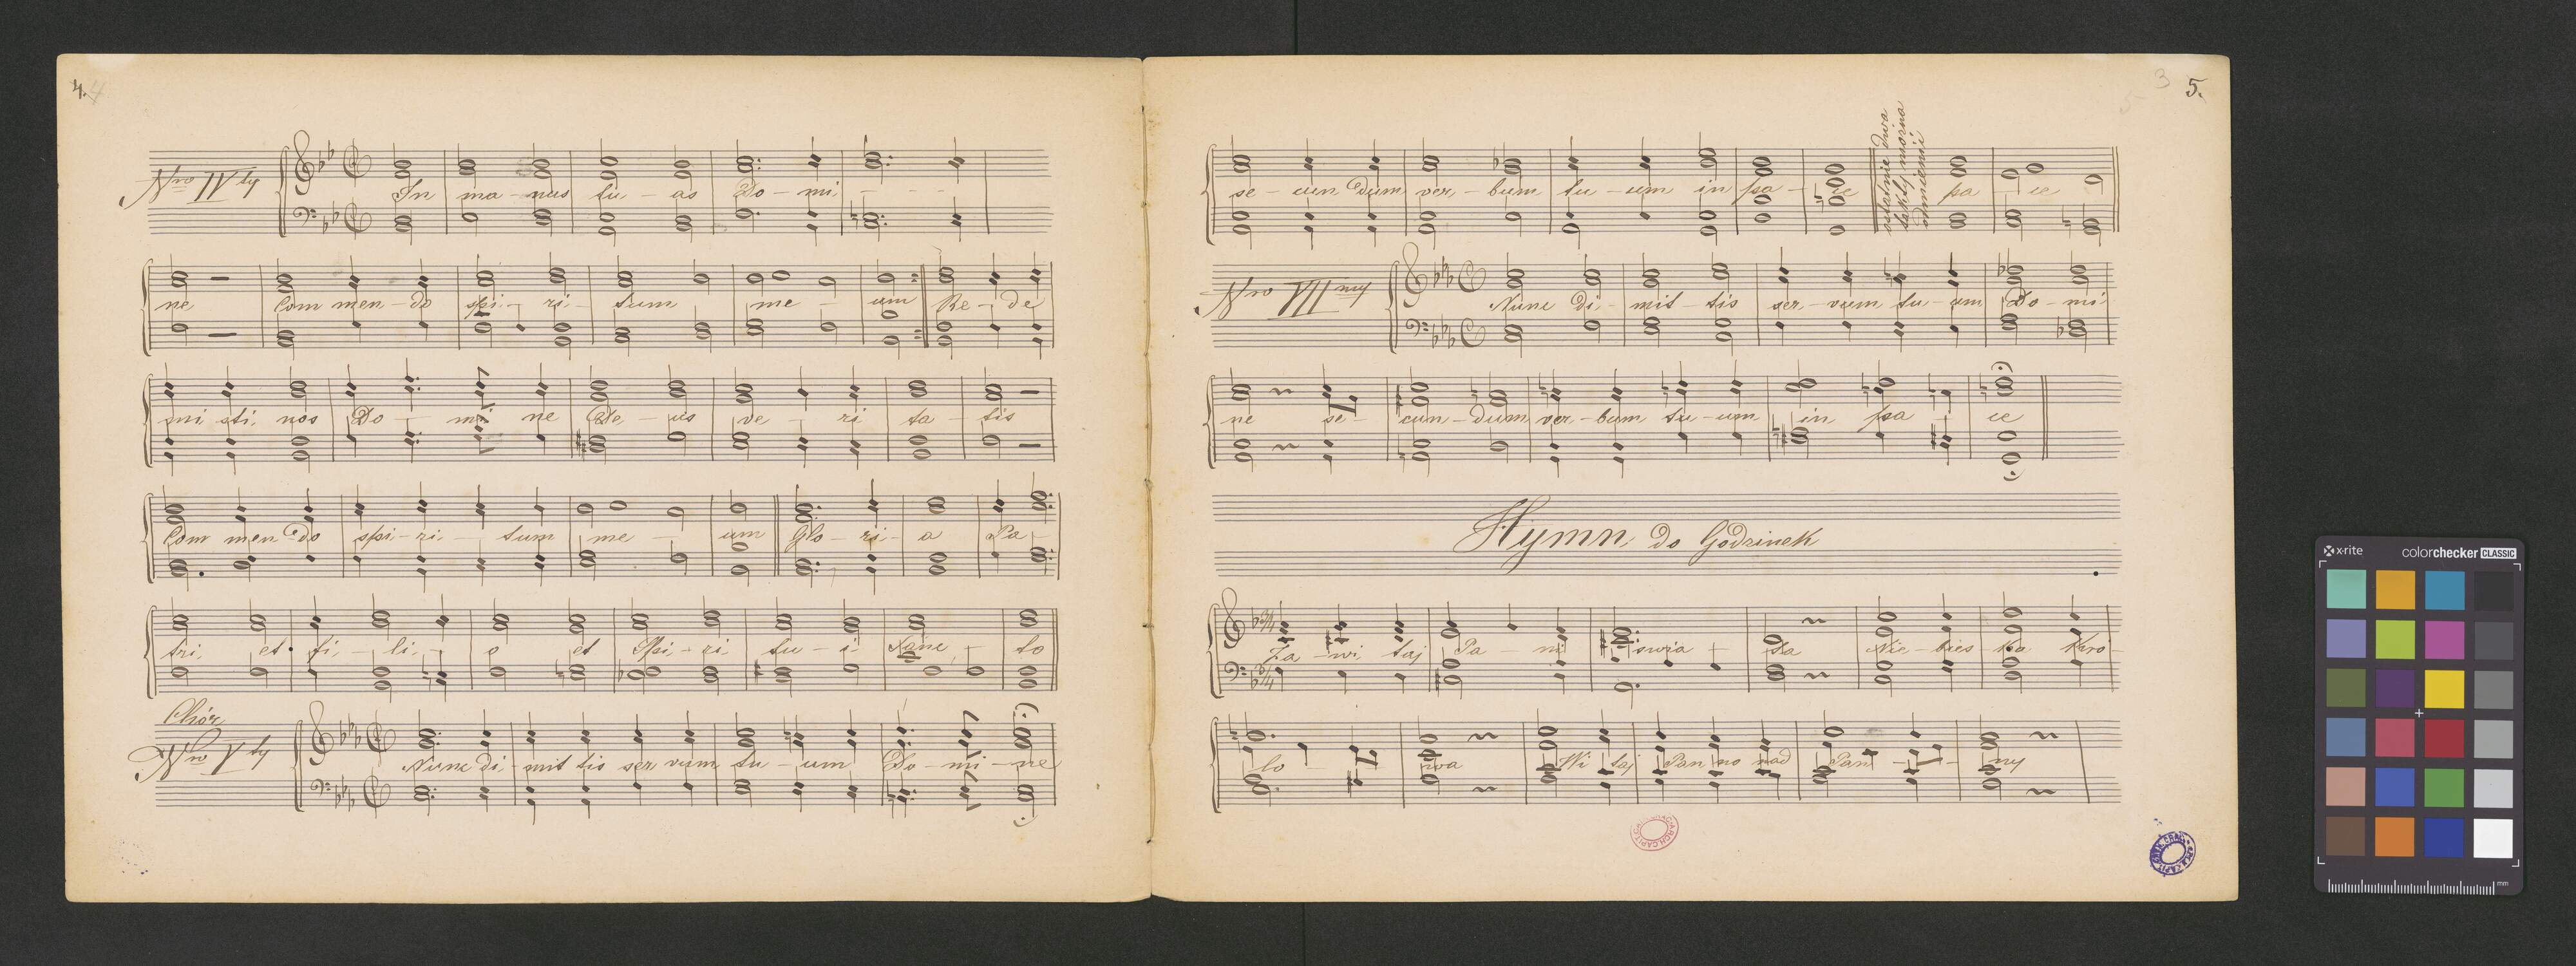 4. 4
Nro IV ty
In ma - nus tu - as Do - mi - - - -
ne Com men - do spi - ri - tum me - um Re - de
mi sti nos Do - mi ne De - us ve - ri ta - tis
Com men - do spi - ri - tum me - um Glo - ri - a Pa -
tri et fi - li - o et Spi - ri tu - i Sanc - to
Chór
Nro V ty
Nunc di - mit tis ser vum tu - um Do - mi - ne
3 5.
se - cun dum ver - bum tu - um in pa - ce
ostatnie dwa
takty można
odmienić
pa ce
Nro VII my
Nunc di - mit - tis ser - vum tu - um Do - mi
ne se - cun - dum ver - bum tu - um in pa - ce
Hymn do Godzinek
3/4 Za - wi taj Pa - ni swia - ta Nie - bies - ka Kró -
3/4
lo - wa Wi taj Pan no nad Pan - - ny
x-rite colorchecker CLASSIC
mm